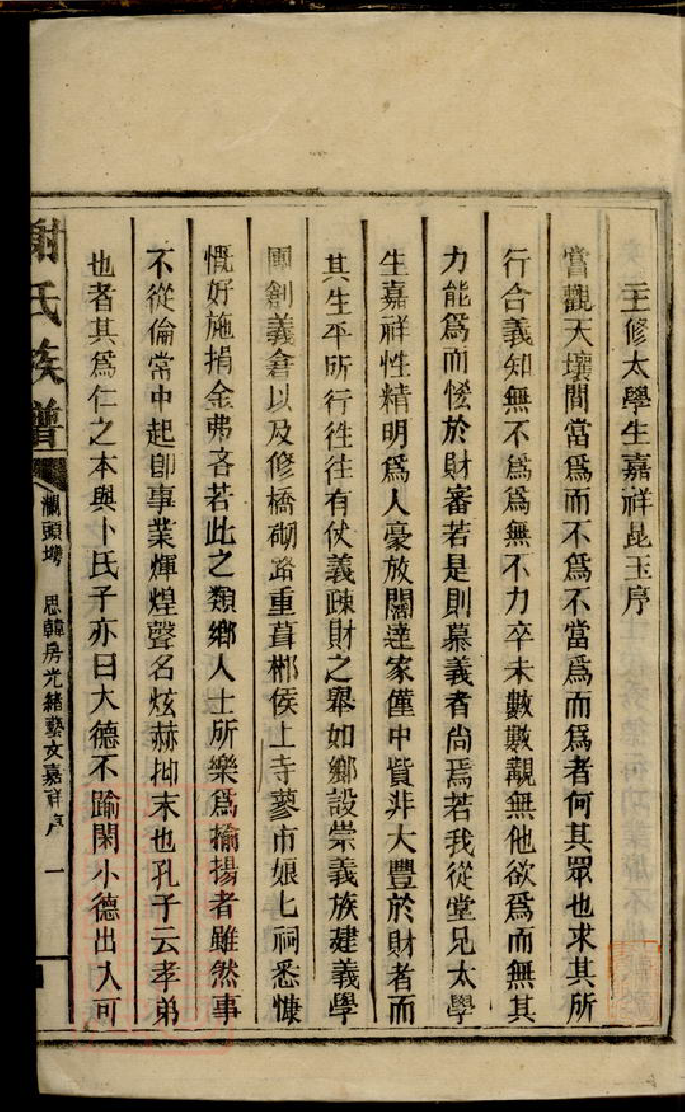 主修太學生嘉祥昆玉序
嘗觀天壤間當爲而不爲不當爲而爲者何其眾也求其所
行合義知無不爲爲無不力卒未數數覯無他欲爲而無其
力能爲而慳於財審若是則慕義者尚焉若我從堂兄太學
生嘉祥性精明爲人豪放闊達家僅中貲非大豐於財者而
其生平所行徃往有仗義疎財之舉如鄉設崇義族建義學
團創義倉以及修橋砌路重葺郴侯上寺蓼市娘七祠悉慷
慨好施捐金弗吝若此之類鄉人士所樂爲揄揚者雖然事
不從倫常中起卽事業煇煌聲名炫赫抝末也孔子云孝弟
也者其爲仁之本與卜氏子亦曰大德不踰閑小德出入可
謝氏族譜
頭塆 思韓房光緒藝文嘉祥序 一